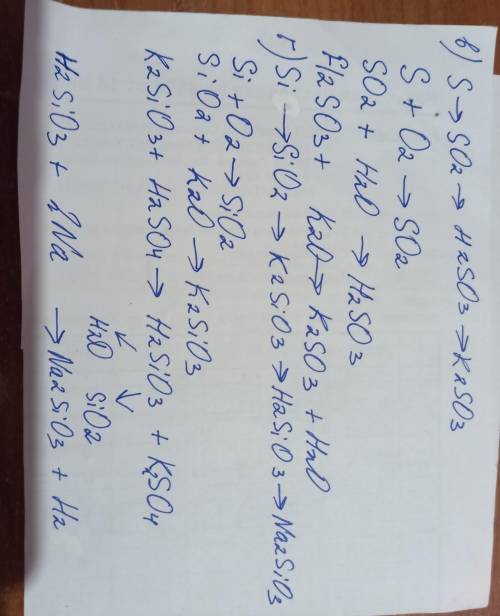 в) S → SO2 → H2SO3 → K2SO3
S + O2 → SO2
SO2 + H2O → H2SO3
H2SO3 + K2O → K2SO3 + H2O
г) Si → SiO2 → K2SiO3 → H2SiO3 → Na2SiO3
Si + O2 → SiO2
SiO2 + K2O → K2SiO3
K2SiO3 + H2SO4 → H2SiO3 + K2SO4
H2O SiO2
H2SiO3 + 2Na → Na2SiO3 + H2